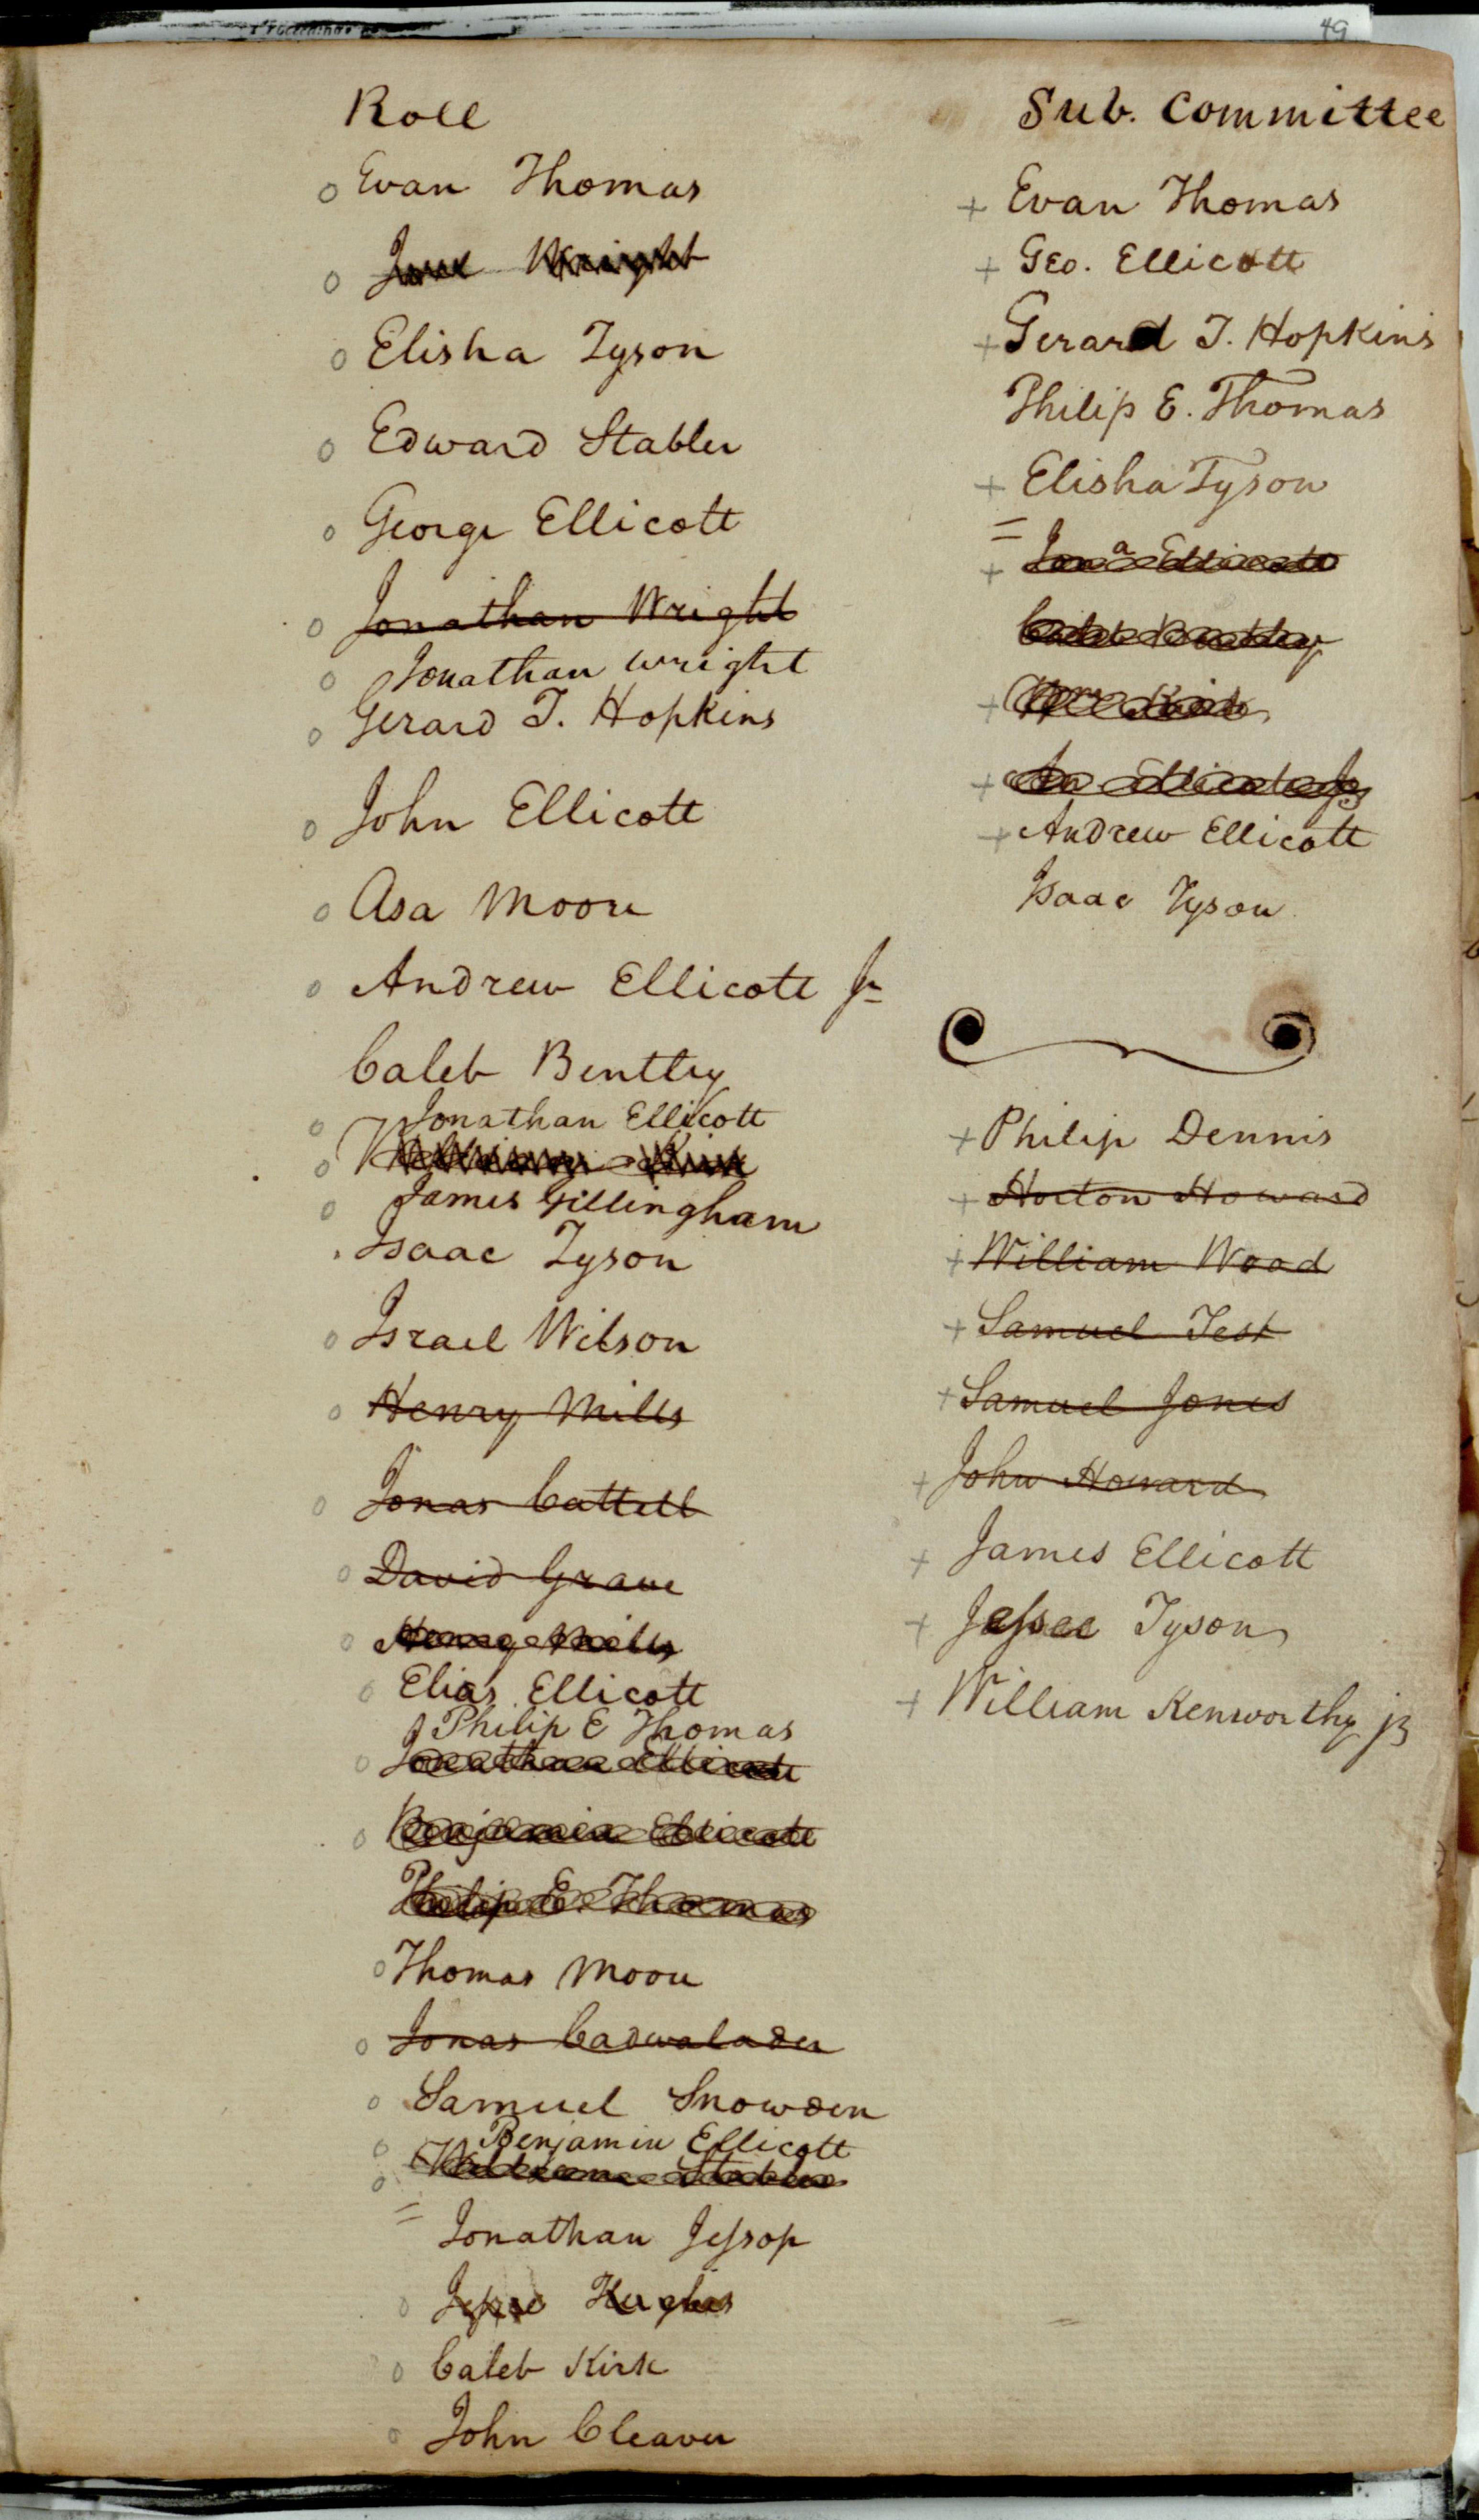 49
Roll
Evan Thomas
Wright
Elisha Tyson
Edward Stabler
George Ellicott
Jonathan Wright
Jonathan wright
Gerard T. Hopkins
John Ellicott
Asa Moore
Andrew Ellicott Jr
Caleb Bentley
Jonathan Ellicott
William Kirk
James Gillingham
Isaac Tyson
Israel Wilson
Henry Mills
Jonas Cattell
David Grave
Henry Mills
Elias Ellicott
Philip E Thomas
Jonathan Ellicott
Benjamin Ellicott
Philip E. Thomas
Thomas Moore
Jonas Cadwalader
Samuel Snowden
Benjamin Ellicott
William Stabler
Jonathan Jessop
Jesse Hughes
Caleb Kirk
John Cleaver
Sub. Committee
+ Evan Thomas
+ Geo. Ellicott
+ Gerard T. Hopkins
Philip E. Thomas
+ Elisha Tyson
+ Jona Ellicott
Caleb Bentley
+ Wm Kirk
+ Ellicott Jr
+ Andrew Ellicott
Isaac Tyson
+ Philip Dennis
+ Horton Howard
+ William Wood
+ Samuel Test
+ Samuel Jones
+ John Howard
+ James Ellicott
+ Jessee Tyson
+ William Kenworthy jr